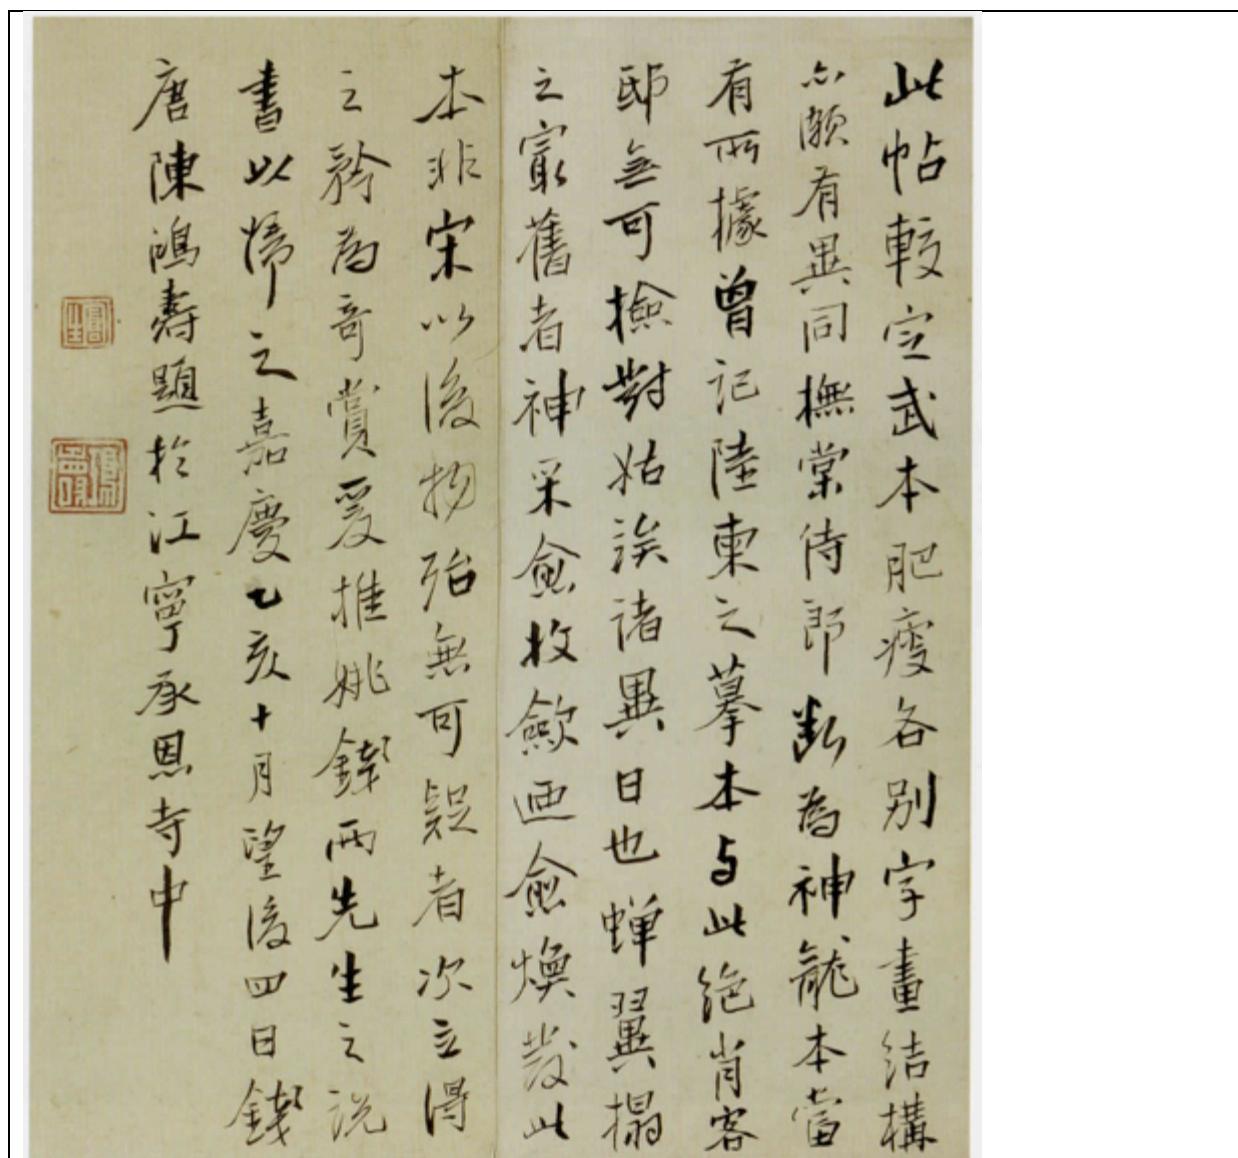 此帖較定武本肥瘦各別字畫結構
亦頗有異同撫棠侍郎斷為神龍本當
有所據曾記陸柬之摹本與此絕肖客
邸無可檢對姑誒諸異日也蟬翼搨
之寂舊者神采愈收歛迺愈煥發此
本非宋以後物殆無可疑者次立得
之矜為奇賞爰推姚錢兩先生之說
書以歸之嘉慶乙亥十月望後四日錢
唐陳鴻壽題於江寧承恩寺中